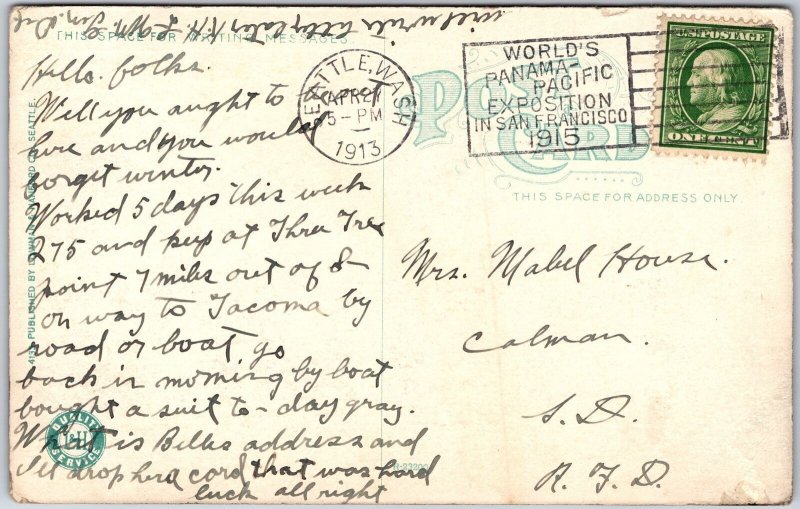 THIS SPACE FOR WRITING MESSAGES
Hello. folks.
Well you aught to be
here and you would
forget winter.
Worked 5 days this week
275 and keep at Three Tree
point 7 miles out of S-
on way to Tacoma by
road or boat, go
back in morning by boat
bought a suit to-day gray.
What is Belles address and
Ill drop her a card that was hard
luck all right
will write later
SEATTLE, WASH
APR 27
5-PM
1913
WORLD'S
PANAMA-
PACIFIC
EXPOSITION
IN SAN FRANCISCO
1915
U.S. POSTAGE
ONE CENT
POST
CARD
THIS SPACE FOR ADDRESS ONLY.
Mrs. Mabel House.
Colman.
S. D.
R. F. D.
PUBLISHED BY LOWMAN & HANFORD CO. SEATTLE.
QUALITY
L&H
SERVICE